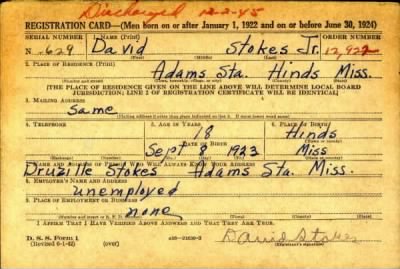 Discharged 12-2-45
REGISTRATION CARD—(Men born on or after January 1, 1922 and on or before June 30, 1924)
SERIAL NUMBER 1. NAME (Print) ORDER NUMBER
N-629 David Stokes Jr. 12,922
2. PLACE OF RESIDENCE (Print)
Adams Sta. Hinds Miss.
[THE PLACE OF RESIDENCE GIVEN ON THE LINE ABOVE WILL DETERMINE LOCAL BOARD
JURISDICTION; LINE 2 OF REGISTRATION CERTIFICATE WILL BE IDENTICAL]
3. MAILING ADDRESS
Same
[Mailing address if other than place indicated on line 2. If same insert word same]
4. TELEPHONE 5. AGE IN YEARS 6. PLACE OF BIRTH
18 Hinds
DATE OF BIRTH
Sept 8 1923 Miss
7. NAME AND ADDRESS OF PERSON WHO WILL ALWAYS KNOW YOUR ADDRESS
Druzille Stokes Adams Sta. Miss.
8. EMPLOYER'S NAME AND ADDRESS
unemployed
9. PLACE OF EMPLOYMENT OR BUSINESS
none
I AFFIRM THAT I HAVE VERIFIED ABOVE ANSWERS AND THAT THEY ARE TRUE.
D. S. S. Form 1
(Revised 6-1-42) (over) David Stokes